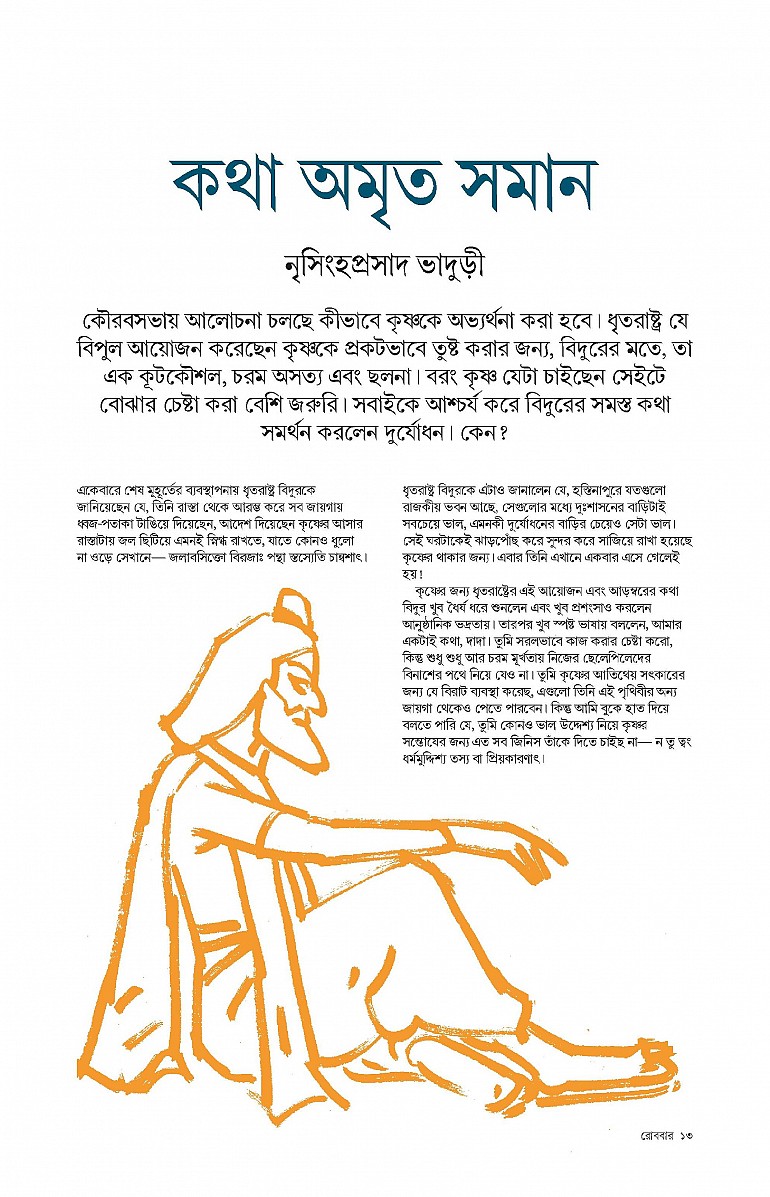 কথা অমৃত সমান
নৃসিংহপ্রসাদ ভাদুড়ী
কৌরবসভায় আলোচনা চলছে কীভাবে কৃষ্ণকে অভ্যর্থনা করা হবে। ধৃতরাষ্ট্র যে
বিপুল আয়োজন করেছেন কৃষ্ণকে প্রকটভাবে তুষ্ট করার জন্য, বিদুরের মতে, তা
এক কূটকৌশল, চরম অসত্য এবং ছলনা। বরং কৃষ্ণ যেটা চাইছেন সেইটে
বোঝার চেষ্টা করা বেশি জরুরি। সবাইকে আশ্চর্য করে বিদুরের সমস্ত কথা
সমর্থন করলেন দুর্যোধন। কেন?
একেবারে শেষ মুহূর্তের ব্যবস্থাপনায় ধৃতরাষ্ট্র বিদুরকে
জানিয়েছেন যে, তিনি রাস্তা থেকে আরম্ভ করে সব জায়গায়
ধ্বজ-পতাকা টাঙিয়ে দিয়েছেন, আদেশ দিয়েছেন কৃষ্ণের আসার
রাস্তাটায় জল ছিটিয়ে এমনই স্নিগ্ধ রাখতে, যাতে কোনও ধুলো
না ওড়ে সেখানে— জলাবসিক্তো বিরজাঃ পন্থা স্তস্যেতি চান্বশাৎ।
ধৃতরাষ্ট্র বিদুরকে এটাও জানালেন যে, হস্তিনাপুরে যতগুলো
রাজকীয় ভবন আছে, সেগুলোর মধ্যে দুঃশাসনের বাড়িটাই
সবচেয়ে ভাল, এমনকী দুর্যোধনের বাড়ির চেয়েও সেটা ভাল।
সেই ঘরটাকেই ঝাড়পোঁছ করে সুন্দর করে সাজিয়ে রাখা হয়েছে
কৃষ্ণের থাকার জন্য। এবার তিনি এখানে একবার এসে গেলেই
হয়!
কৃষ্ণের জন্য ধৃতরাষ্ট্রের এই আয়োজন এবং আড়ম্বরের কথা
বিদুর খুব ধৈর্য ধরে শুনলেন এবং খুব প্রশংসাও করলেন
আনুষ্ঠানিক ভদ্রতায়। তারপর খুব স্পষ্ট ভাষায় বললেন, আমার
একটাই কথা, দাদা। তুমি সরলভাবে কাজ করার চেষ্টা করো,
কিন্তু শুধু শুধু আর চরম মূর্খতায় নিজের ছেলেপিলেদের
বিনাশের পথে নিয়ে যেও না। তুমি কৃষ্ণের আতিথেয় সৎকারের
জন্য যে বিরাট ব্যবস্থা করেছ, এগুলো তিনি এই পৃথিবীর অন্য
জায়গা থেকেও পেতে পারবেন। কিন্তু আমি বুকে হাত দিয়ে
বলতে পারি যে, তুমি কোনও ভাল উদ্দেশ্য নিয়ে কৃষ্ণর
সন্তোষের জন্য এত সব জিনিস তাঁকে দিতে চাইছ না— ন তু ত্বং
ধর্মমুদ্দিশ্য তস্য বা প্রিয়কারণাৎ।
রোববার ১৩